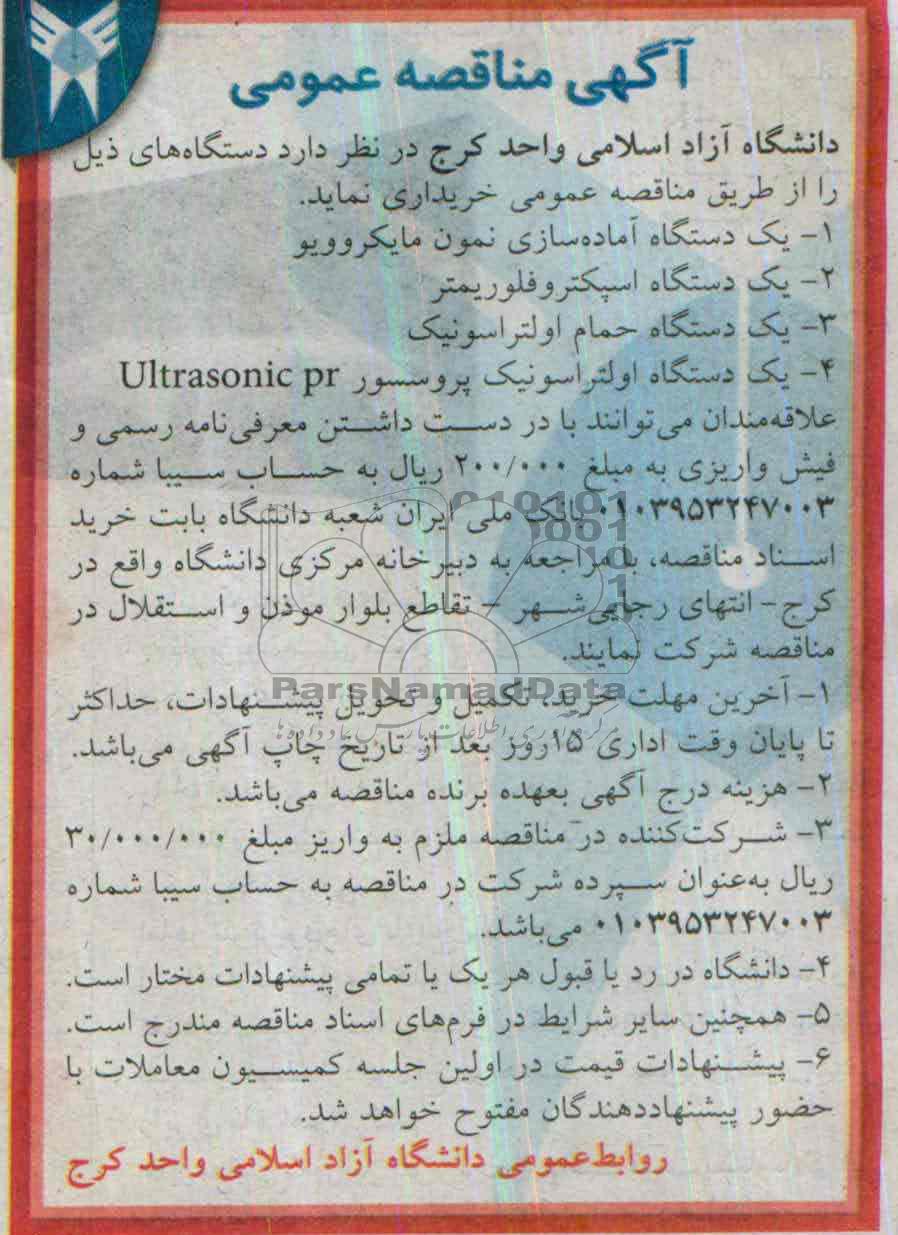 آگهی مناقصه عمومی
دانشگاه آزاد اسلامی واحد کرج در نظر دارد دستگاه‌های ذیل
را از طریق مناقصه عمومی خریداری نماید.
۱- یک دستگاه آماده‌سازی نمون مایکروویو
۲- یک دستگاه اسپکتروفلوریمتر
۳- یک دستگاه حمام اولتراسونیک
۴- یک دستگاه اولتراسونیک پروسسور Ultrasonic pr
علاقه‌مندان می‌توانند با در دست داشتن معرفی‌نامه رسمی و
فیش واریزی به مبلغ ۲۰۰/۰۰۰ ریال به حساب سیبا شماره
۰۱۰۳۹۵۳۲۴۷۰۰۳ بانک ملی ایران شعبه دانشگاه بابت خرید
اسناد مناقصه، با مراجعه به دبیرخانه مرکزی دانشگاه واقع در
کرج - انتهای رجایی‌شهر - تقاطع بلوار موذن و استقلال در
مناقصه شرکت نمایند.
۱- آخرین مهلت خرید، تکمیل و تحویل پیشنهادات، حداکثر
تا پایان وقت اداری ۱۵روز بعد از تاریخ چاپ آگهی می‌باشد.
۲- هزینه درج آگهی بعهده برنده مناقصه می‌باشد.
۳- شرکت‌کننده در مناقصه ملزم به واریز مبلغ ۳۰/۰۰۰/۰۰۰
ریال به‌عنوان سپرده شرکت در مناقصه به حساب سیبا شماره
۰۱۰۳۹۵۳۲۴۷۰۰۳ می‌باشد.
۴- دانشگاه در رد یا قبول هر یک یا تمامی پیشنهادات مختار است.
۵- همچنین سایر شرایط در فرم‌های اسناد مناقصه مندرج است.
۶- پیشنهادات قیمت در اولین جلسه کمیسیون معاملات با
حضور پیشنهاددهندگان مفتوح خواهد شد.
روابط‌عمومی دانشگاه آزاد اسلامی واحد کرج
ParsNamadData